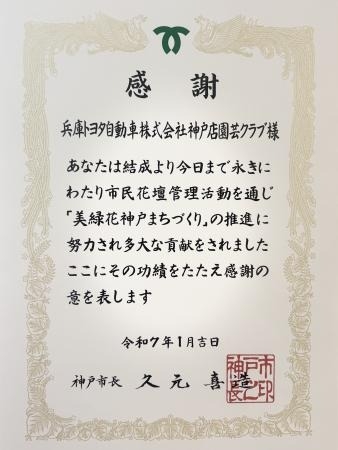 感謝
兵庫トヨタ自動車株式会社神戸店園芸クラブ様
あなたは結成より今日まで永きに
わたり市民花壇管理活動を通じ
「美緑花神戸まちづくり」の推進に
努力され多大な貢献をされました
ここにその功績をたたえ感謝の
意を表します
令和7年1月吉日
神戸市長 久元喜造
神戸市長之印